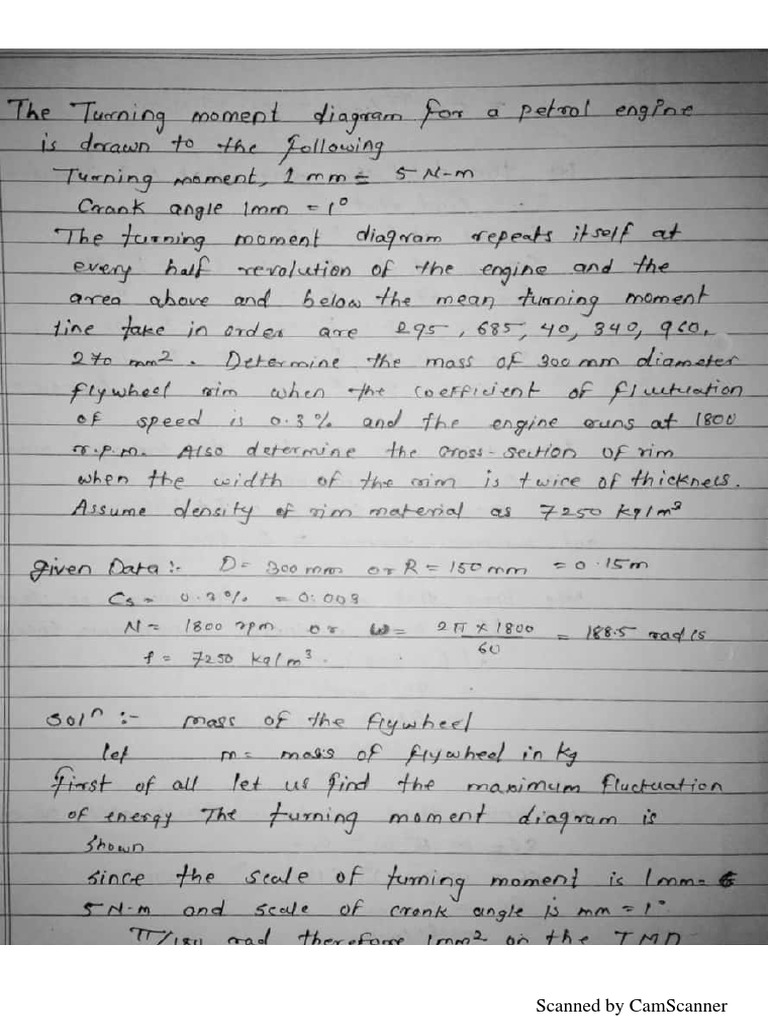 The Turning moment diagram for a petrol engine
is drawn to the following
Turning moment, 1 mm = 5 N-m
Crank angle 1mm = 1°
The turning moment diagram repeats itself at
every half revolution of the engine and the
area above and below the mean turning moment
line take in order are 295, 685, 40, 340, 960,
270 mm². Determine the mass of 300 mm diameter
flywheel rim when the coefficient of fluctuation
of speed is 0.3% and the engine runs at 1800
r.p.m. Also determine the cross-section of rim
when the width of the rim is twice of thickness.
Assume density of rim material as 7250 kg/m³
given Data :- D = 300 mm or R = 150 mm = 0.15m
Cs = 0.3% = 0.003
N = 1800 rpm or ω = 2π × 1800 / 60 = 188.5 rad/s
f = 7250 kg/m³.
Solⁿ :- mass of the flywheel
let m = mass of flywheel in kg
First of all let us find the maximum fluctuation
of energy The turning moment diagram is
shown
since the scale of turning moment is 1mm =
5 N-m and scale of crank angle is mm = 1°
π/180 rad therefore 1mm² on the TMD
Scanned by CamScanner